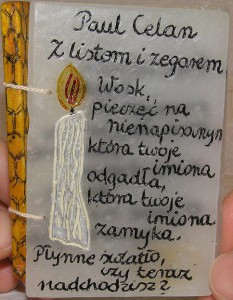 Paul Celan
Z listem i zegarem
Wosk,
pieczęć na
nienapisanym
która twoje
imiona
odgadła,
która twoje
imiona
zamyka.
Płynne światło,
czy teraz
nadchodzisz?